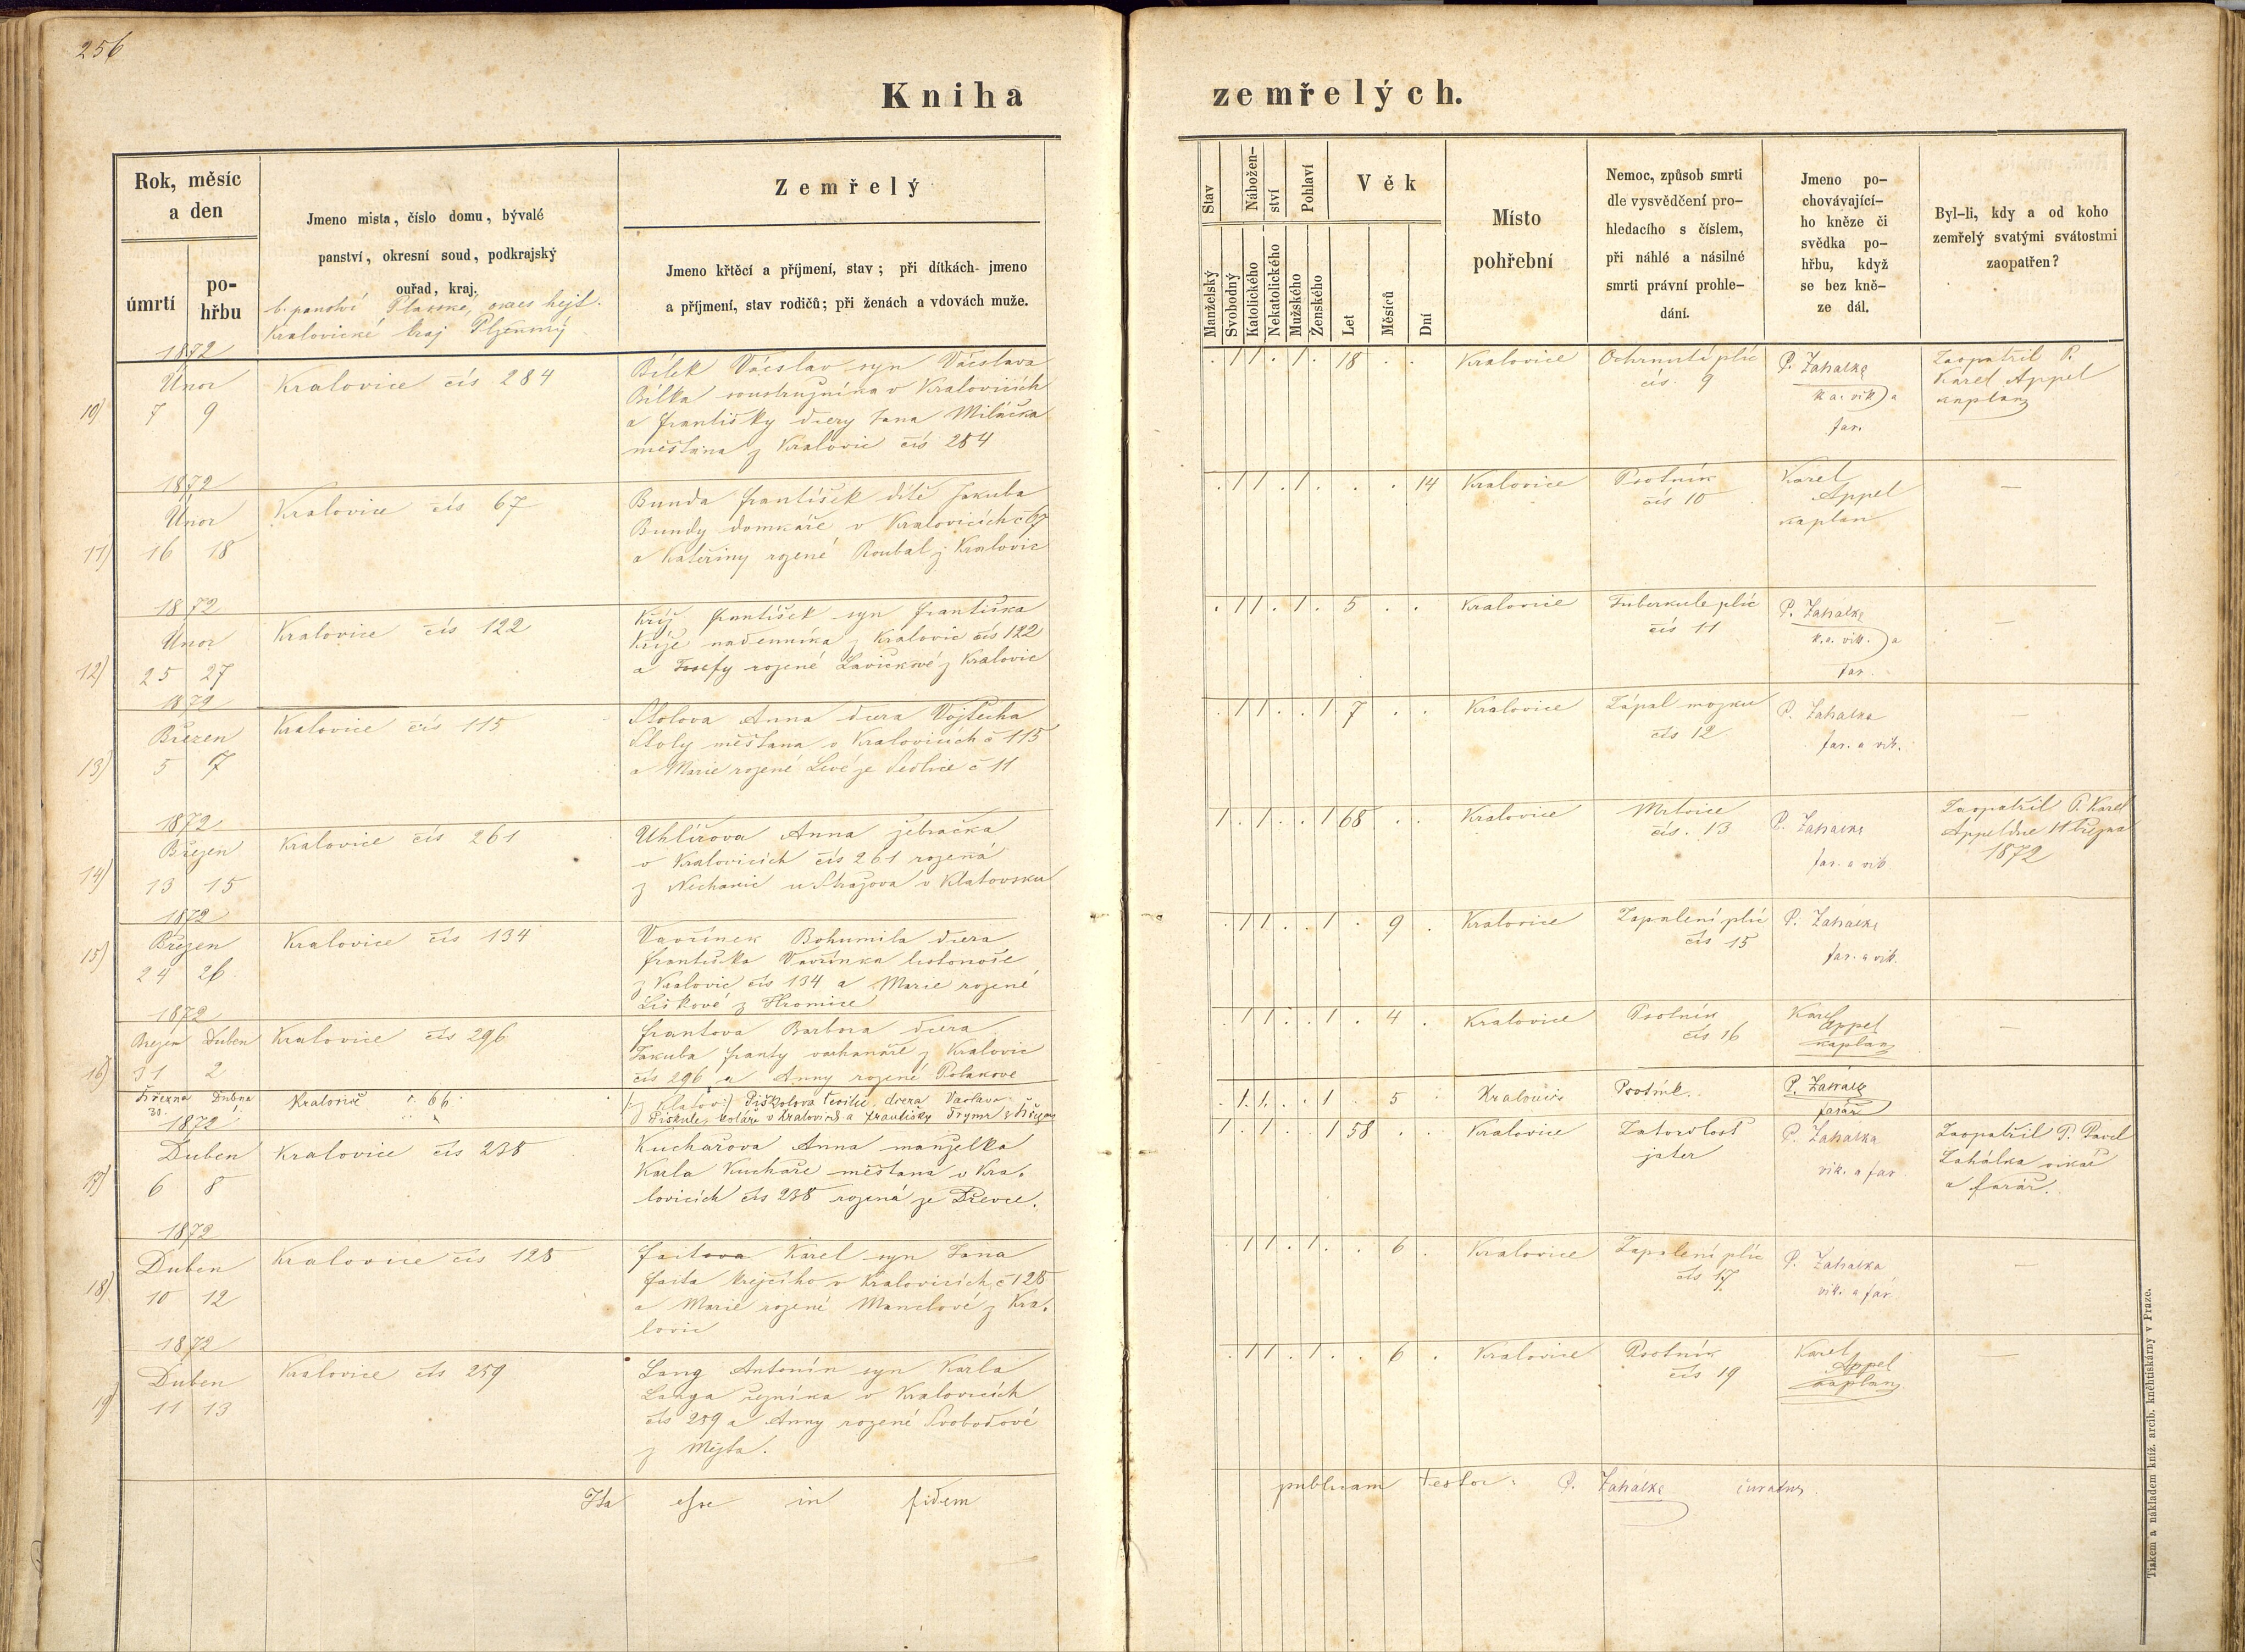 256
Kniha zemřelých.
Rok, měsíc
a den
úmrtí
po-
hřbu
Jmeno mista, číslo domu, bývalé
panství, okresní soud, podkrajský
ouřad, kraj.
b. panství Plasské, okres hejt.
Kralovické kraj Plzenský
Zemřelý
Jmeno křtěcí a příjmení, stav; při dítkách jmeno
a příjmení, stav rodičů; při ženách a vdovách muže.
Stav
Manželský
Svobodný
Nábožen-
ství
Katolického
Nekatolického
Pohlaví
Mužského
Ženského
Věk
Let
Měsíců
Dní
Místo
pohřební
Nemoc, způsob smrti
dle vysvědčení pro-
hledacího s číslem,
při náhlé a násilné
smrti právní prohle-
dání.
Jmeno po-
chovávající-
ho kněze či
svědka po-
hřbu, když
se bez kně-
ze dál.
Byl-li, kdy a od koho
zemřelý svatými svátostmi
zaopatřen?
1872
Únor
10) 7 9
Kralovice čís 284
Bílek Václav syn Václava
Bílka soustružníka v Kralovicích
a Františky dcery Jana Miláčka
měšťana z Kralovic čís 284
. 1 1 . 1 . 18 . .
Kralovice
Ochrnutí plic
čís. 9
P. Zahálka
k. a. vik. a
far.
Zaopatřil P.
Karel Appel
kaplan
1872
Únor
11) 16 18
Kralovice čís 67
Bunda František dítě Jakuba
Bundy domkáře v Kralovicích č 67
a Kateřiny rozené Roubal z Kralovic
. 1 1 . 1 . . . 14
Kralovice
Psotník
čís 10
Karel
Appel
kaplan
—
1872
Únor
12) 25 27
Kralovice čís 122
Kříž František syn Františka
Kříže nadenníka z Kralovic čís 122
a Josefy rozené Lavičkové z Kralovic
. 1 1 . 1 . 5 . .
Kralovice
Tuberkule plic
čís 11
P. Zahálka
k. a. vik. a
far.
—
1872
Březen
13) 5 7
Kralovice čís 115
Stolova Anna dcera Vojtěcha
Stoly měšťana v Kralovicích č 115
a Marie rozené Levé ze Sedlice č 11
. 1 1 . . 1 7 . .
Kralovice
Zápal mozku
čís 12
P. Zahálka
far. a vik.
—
1872
Březen
14) 13 15
Kralovice čís 261
Uhlířova Anna žebračka
v Kralovicích čís 261 rozená
z Nechanic u Stražova v Klatovsku
1 . 1 . . 1 68 . .
Kralovice
Mrtvice
čís. 13
P. Zahálka
far. a vik
Zaopatřil P. Karel
Appel dne 11 března
1872
1872
Březen
15) 24 26
Kralovice čís 134
Vavřínek Bohumila dcera
Františka Vavřínka listonoše
z Kralovic čís 134 a Marie rozené
Liškové z Hromice
. 1 1 . . 1 . 9 .
Kralovice
Zapalení plic
čís 15
P. Zahálka
far. a vik.
1872
Březen Duben
16) 31 2
Kralovice čís 296
Frantova Barbora dcera
Jakuba Franty sochanáře z Kralovic
čís 296 a Anny rozené Polakove
. 1 1 . . 1 . 4 .
Kralovice
Psotník
čís 16
Karel
Appel
kaplan
—
Března Dubna
30. 1.
Kralovic č. 66
z Klatov Piškotova Cecilie, dcera Vaclava
Piškule, koláře v Kralovicích a Františky
. 1. 1. . . 1 . 5 .
Kralovic
Psotník.
P. Zahálka
farář
1872
Duben
17) 6 8
Kralovice čís 238
Kuchařova Anna manželka
Karla Kuchaře měšťana v Kra-
lovicích čís 238 rozená ze Dřevce.
1 . 1 . . 1 58 . .
Kralovice
Zatvrdlost
jater
P. Zahálka
vik. a far
Zaopatřil P. Pavel
Zahálka vikář
a farář.
1872
Duben
18) 10 12
Kralovice čís 128
Faitova Karel syn Jana
Faita krejčího v Kralovicích č 128
a Marie rozené Manclové z Kra-
lovic
. 1 1 . 1 . . 6 .
Kralovice
Zapalení plic
čís 17
P. Zahálka
vik. a far
—
1872
Duben
19) 11 13
Kralovice čís 259
Lang Antonín syn Karla
Langa řezníka v Kralovicích
čís 259 a Anny rozené Svobodové
z Mýta.
. 1 1 . 1 . . 6 .
Kralovice
Psotník
čís 19
Karel
Appel
kaplan
—
Ita esse in fidem publicam testor: P. Zahálka curatus
Tiskem a nákladem kníž. arcib. kněhtiskárny v Praze.